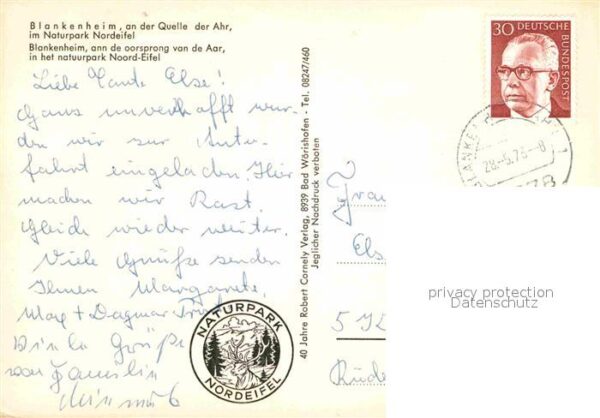 Blankenheim, an der Quelle der Ahr,
im Naturpark Nordeifel
Blankenheim, ann de oorsprong van de Aar,
in het natuurpark Noord-Eifel
Liebe Tante Else!
Ganz unverhofft wur-
den wir zur Auto-
fahrt eingeladen. Hier
machen wir Rast.
Gleich wieder weiter.
Viele Grüße senden
Ihnen Margarete,
Max + Dagmar
Viele Grüße
von Familie
40 Jahre Robert Cornely Verlag, 8939 Bad Wörishofen · Tel. 08247/460
Jeglicher Nachdruck verboten
NATURPARK
NORDEIFEL
30 DEUTSCHE
BUNDESPOST
BLANKEN
28.-5.73.-8
Frau
Els
512
Rüde
privacy protection
Datenschutz